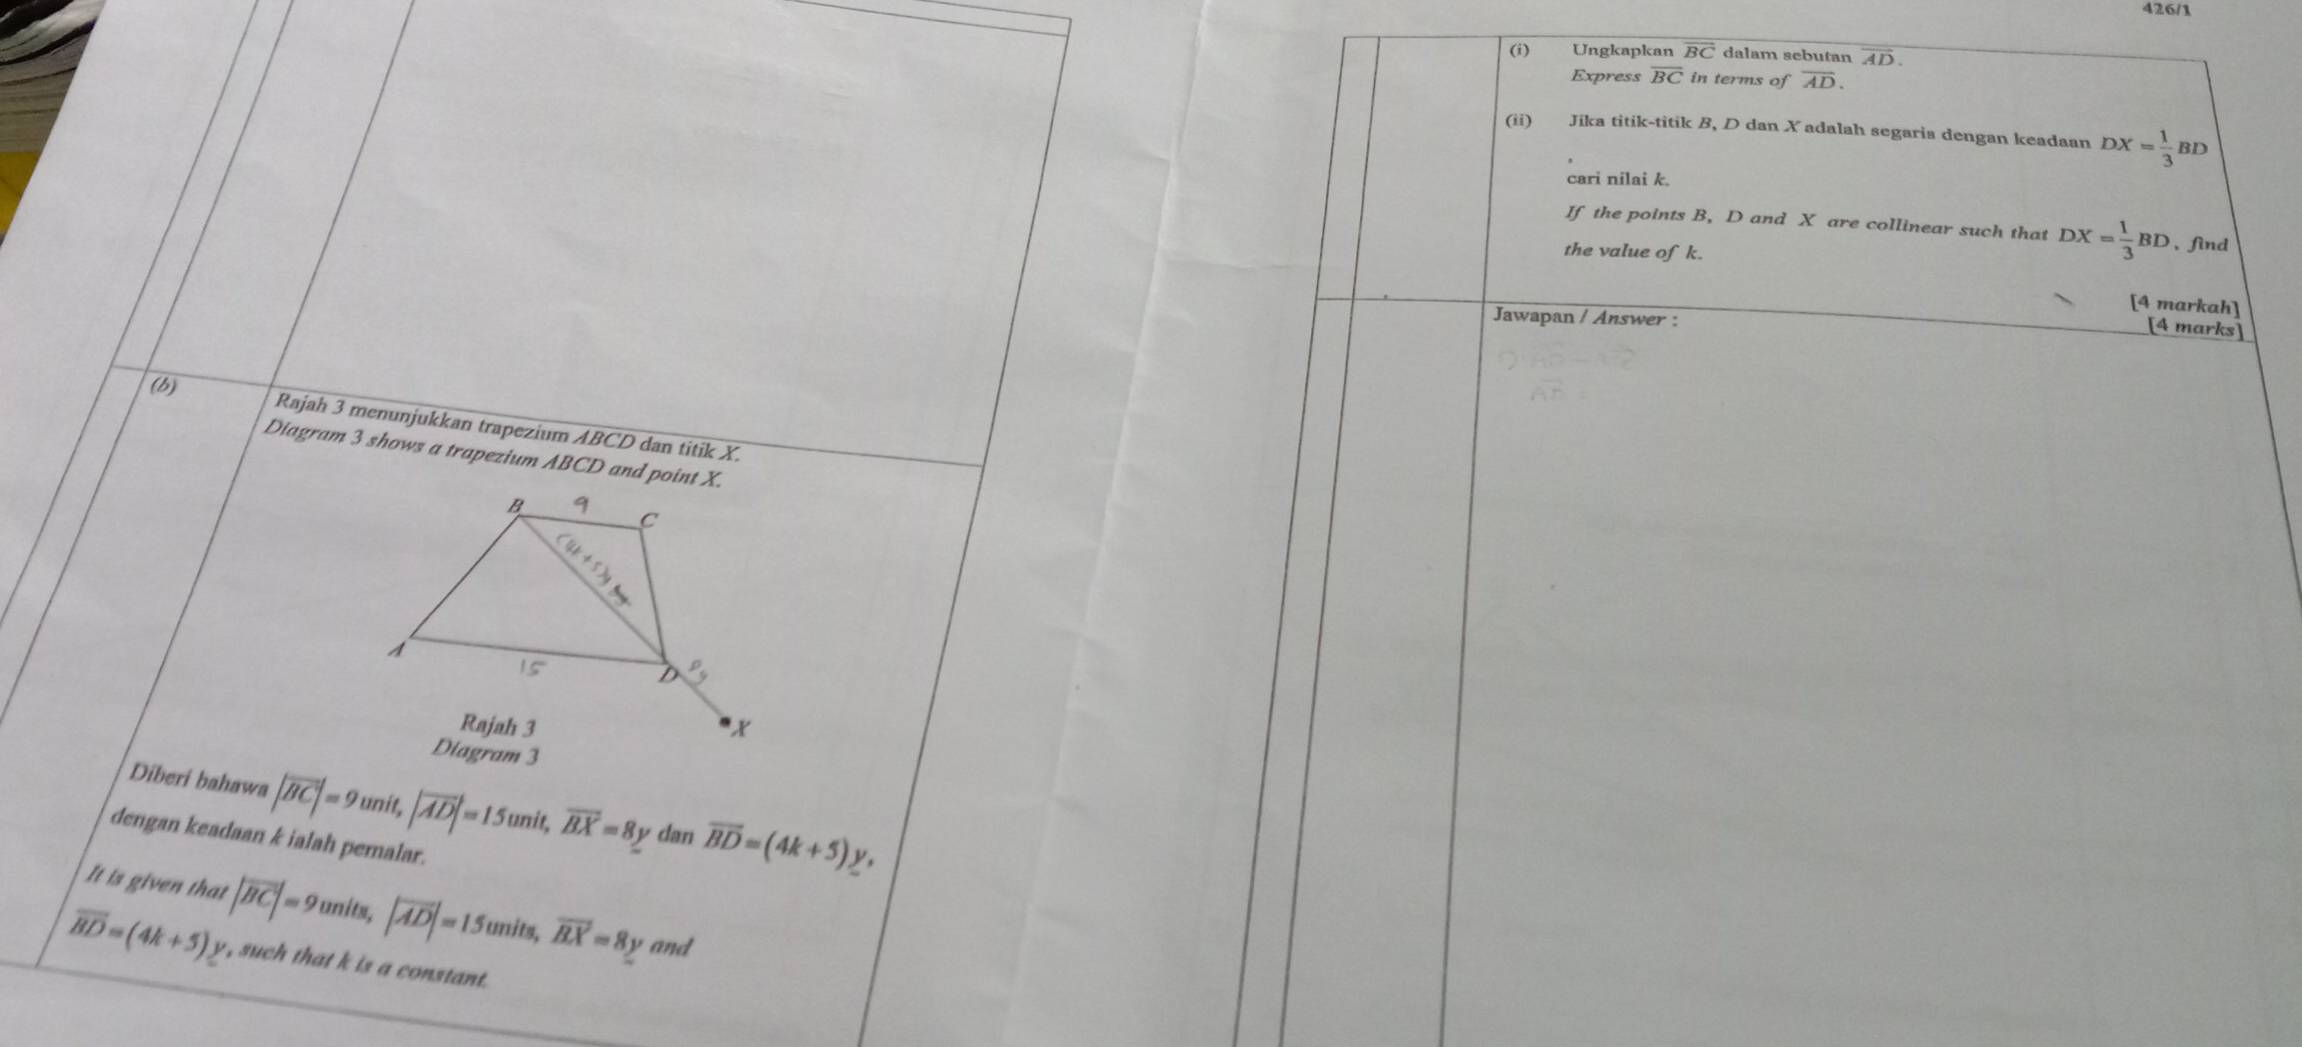 (b)
Rajah 3 menunjukkan trapezium ABCD dan titik X.
Diagram 3 shows a trapezium ABCD and point X.
B 9 C
(4k+5)y
A 15 D
X
Rajah 3
Diagram 3
Diberi bahawa |BC| = 9 unit, |AD| = 15 unit, BX = 8y dan BD = (4k + 5)y,
dengan keadaan k ialah pemalar.
It is given that |BC| = 9 units, |AD| = 15 units, BX = 8y and
BD = (4k + 5)y, such that k is a constant.
426/1
(i) Ungkapkan BC dalam sebutan AD.
Express BC in terms of AD.
(ii) Jika titik-titik B, D dan X adalah segaris dengan keadaan DX = 1/3 BD
,
cari nilai k.
If the points B, D and X are collinear such that DX = 1/3 BD, find
the value of k.
[4 markah]
[4 marks]
Jawapan / Answer :